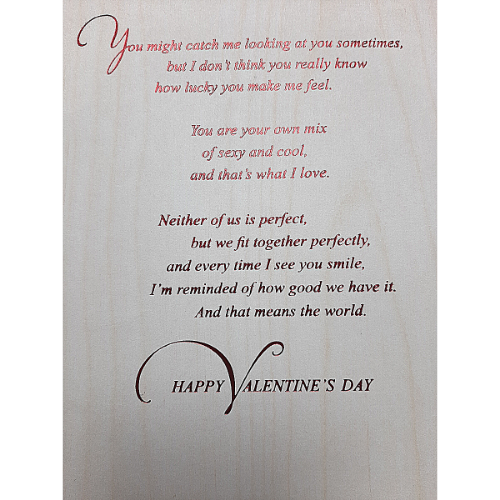 You might catch me looking at you sometimes,
but I don't think you really know
how lucky you make me feel.
You are your own mix
of sexy and cool,
and that's what I love.
Neither of us is perfect,
but we fit together perfectly,
and every time I see you smile,
I'm reminded of how good we have it.
And that means the world.
HAPPY VALENTINE'S DAY